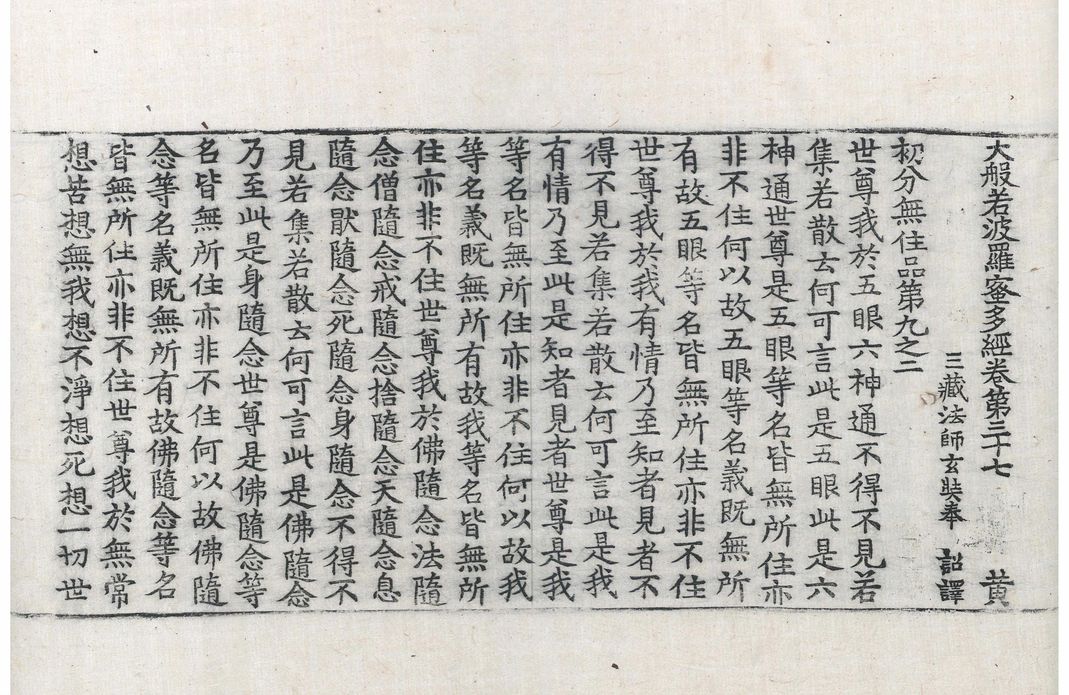 大般若波羅蜜多經卷第三十七 黄
三藏法師玄奘奉 詔譯
初分無住品第九之二
世尊我於五眼六神通不得不見若
集若散云何可言此是五眼此是六
神通世尊是五眼等名皆無所住亦
非不住何以故五眼等名義既無所
有故五眼等名皆無所住亦非不住
世尊我於我有情乃至知者見者不
得不見若集若散云何可言此是我
有情乃至此是知者見者世尊是我
等名皆無所住亦非不住何以故我
等名義既無所有故我等名皆無所
住亦非不住世尊我於佛隨念法隨
念僧隨念戒隨念捨隨念天隨念息
隨念猒隨念死隨念身隨念不得不
見若集若散云何可言此是佛隨念
乃至此是身隨念世尊是佛隨念等
名皆無所住亦非不住何以故佛隨
念等名義既無所有故佛隨念等名
皆無所住亦非不住世尊我於無常
想苦想無我想不淨想死想一切世